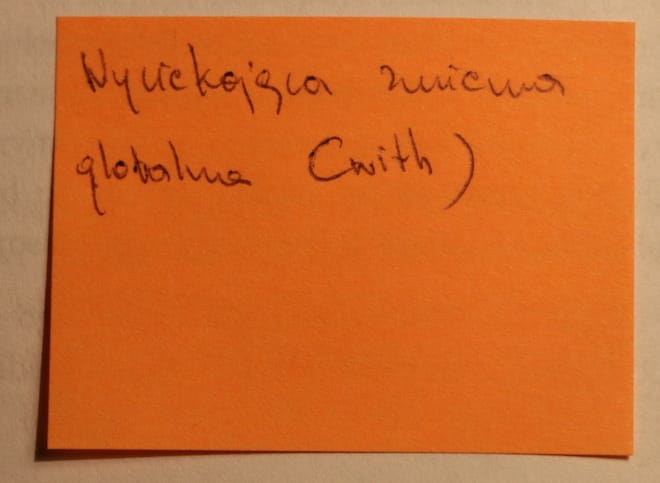 Wyciekająca zmienna
globalna (with)